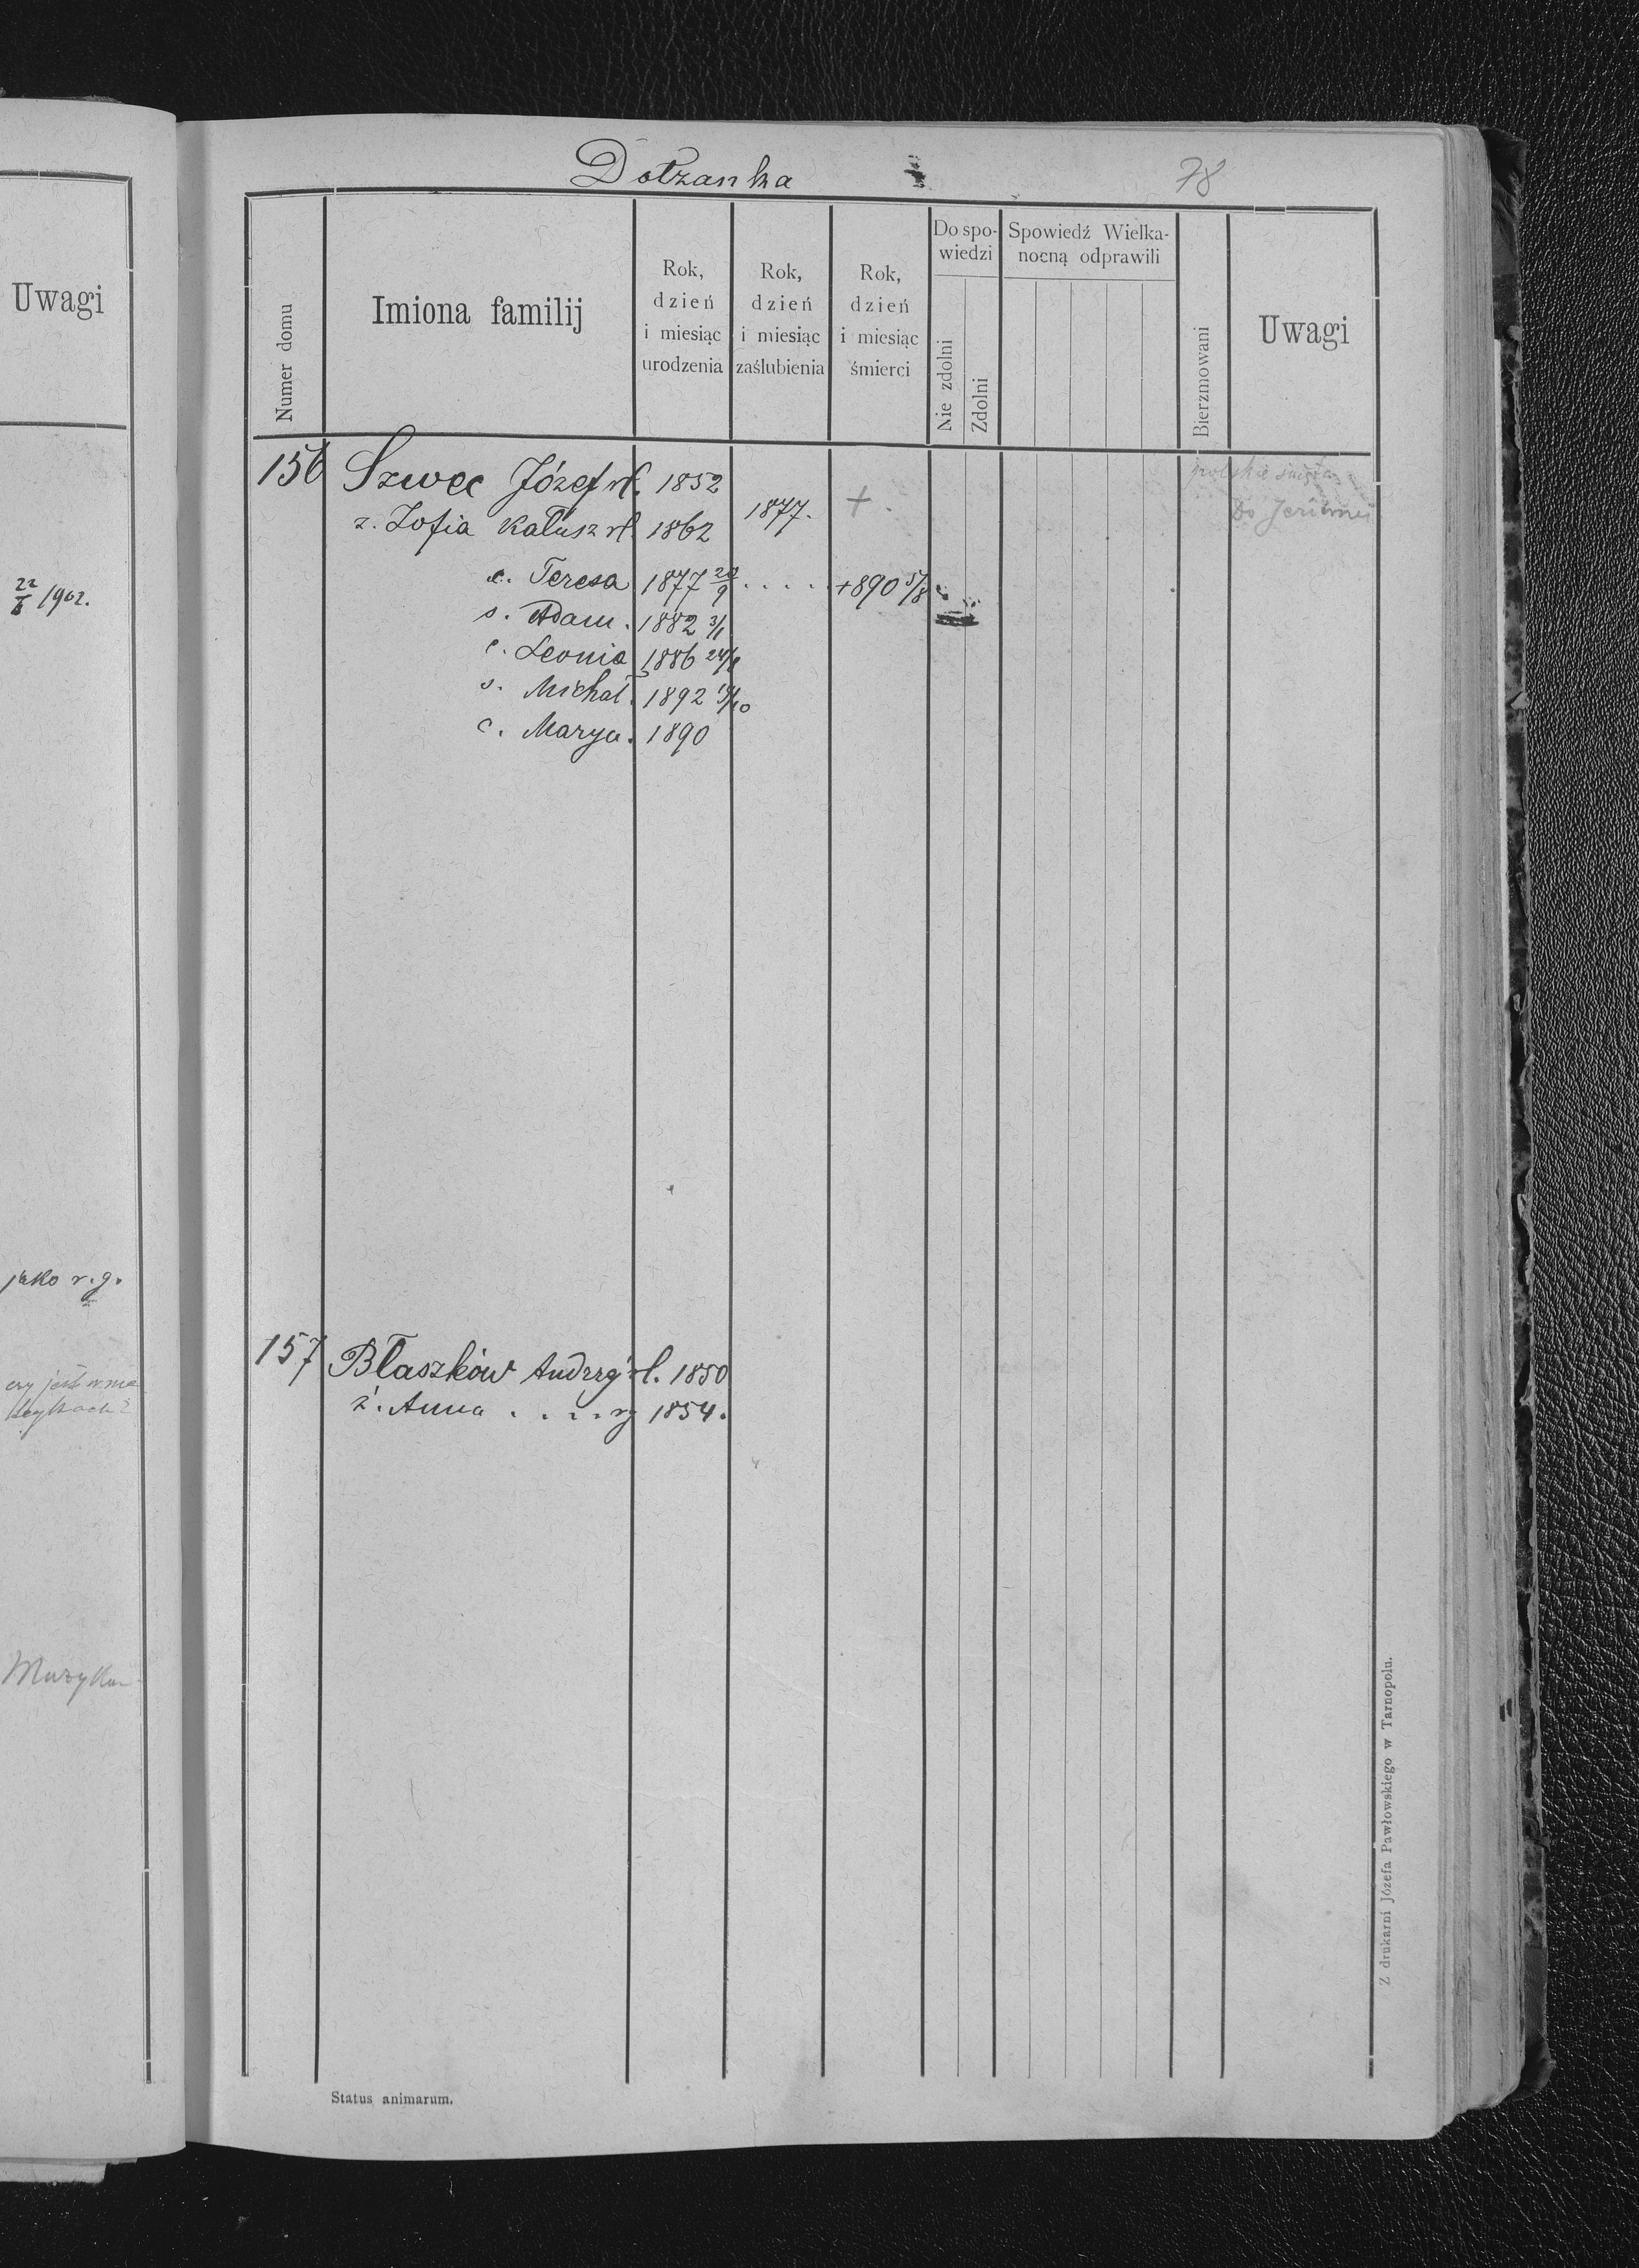 Uwagi
22/6 1902.
jako r. g.
czy jest w me
trykach?
Dołzanka
78
Numer domu
Imiona familij
Rok,
dzień
i miesiąc
urodzenia
Rok,
dzień
i miesiąc
zaślubienia
Rok,
dzień
i miesiąc
śmierci
Do spo-
wiedzi
Nie zdolni
Zdolni
Spowiedź Wielka-
nocną odprawili
Bierzmowani
Uwagi
156 Szwec Józef rł. 1852 polskie święta
ż. Zofia Kałusz rł. 1862 1877. + Do
c. Teresa 1877 20/9 . . . . . +890 5/8
s. Adam. 1882 3/1
c. Leonia 1886 24/8
s. Michał. 1892 /10
c. Marya. 1890
157 Błaszków Andrzej rł. 1850
ż. Anna . . . . . 1854.
Status animarum.
Z drukarni Józefa Pawłowskiego w Tarnopolu.